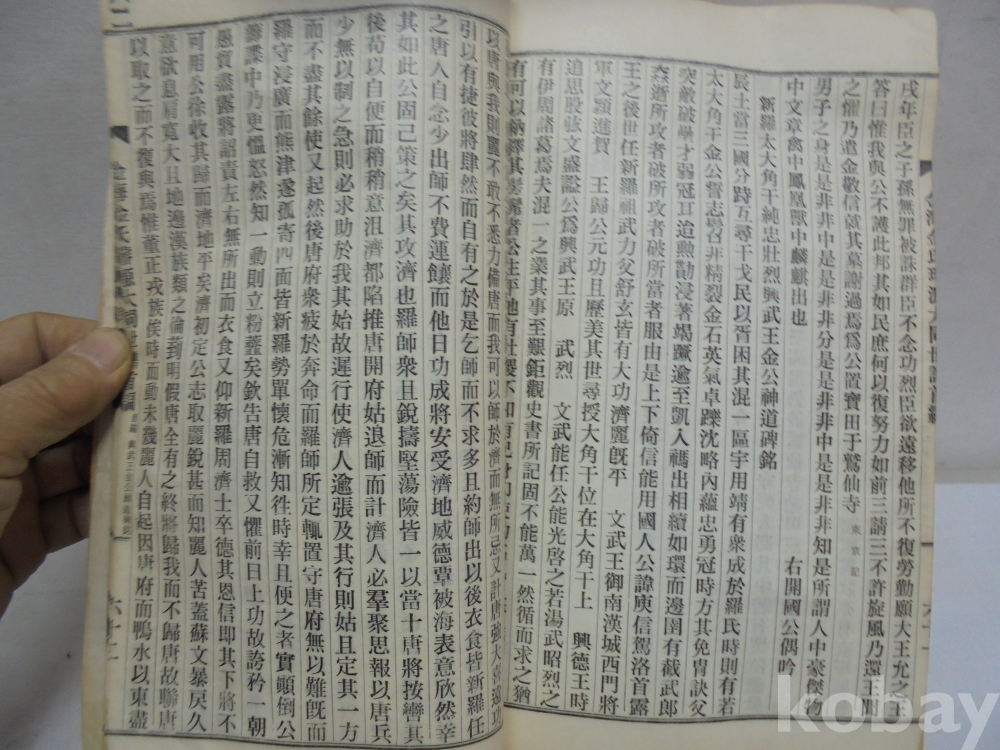 戌年臣之子孫無罪被誅群臣不念功烈臣欲遠移他所不復勞勤願大王允之王
答曰惟我與公不護此邦其如民庶何以復努力如前三請三不許旋風乃還王聞
之懼乃遣金敬信就其墓謝過焉爲公置寶田于鷲仙寺 東京記
男子之身是是非非中是是非非分是是非非中是是非非知是所謂人中豪傑物
中文章禽中鳳凰獸中麒麟出也 右開國公偶吟
新羅太大角干純忠壯烈興武王金公神道碑銘
辰土當三國分時互尋干戈民以胥困其混一區宇用靖有衆成於羅氏時則有若
太大角干金公誓志學名非精裂金石英氣卓躒沈略內蘊忠勇冠時方其免冑訣父
突敵破壘才弱冠耳追勲勣浸著竭蹶逾至凱入禡出相續如環而邊圉有截武郎
森澨所攻者破所攻者破所當者服由是上下倚信能用國人公諱庾信駕洛首露
王之後世任新羅祖武力父舒玄皆有大功濟麗旣平 文武王御南漢城西門將
軍文穎進賀 王歸公元功且歷美其世尋授大角干位在大角干上 興德王時
追思股肱文盛謚公爲興武王原 武烈 文武能任公能光啓之若湯武昭烈之
有伊周諸葛焉夫混一之業其事至艱鉅觀史書所記固不能萬一然循而求之猶
有可以紬繹其髣髴者公生平
以唐與我則麗不敢不悉力備唐而我可以師於濟而無所忌又計唐強大
引以有捷彼將肆然而自有之於是乞師而不求多且約師出以後衣食皆新羅任
之唐人自念少出師不費運饟而他日功成將安受濟地威德覃被海表意欣然幸
其如此公固己策之矣其攻濟也羅師衆且銳擣堅蕩險皆一以當十唐將按轡其
後苟以自便而稍稍意沮濟都陷推唐開府姑退師而計濟人必羣聚思報以唐兵
少無以制之急則必求助於我其始故遲行使濟人逾張及其行則姑且定其一方
而不盡其餘使又起然後唐府衆疲於奔命而羅師所定輒置守唐府無以難旣而
羅守浸廣而熊津遂孤寄四面皆新羅勢單懷危漸知徃時幸且便之者實顚倒公
籌諜中乃更慍怒然知一動則立粉虀矣欽告唐自救又懼前日上功故誇矜一朝
愚實盡露將詔責左右無所出而衣食又仰新羅周濟士卒德其恩信卽其下將不
可用公徐收其歸而濟地平矣濟初定公志取麗銳甚而知麗人苦蓋蘇文暴戾久
意欲息肩寬大且地邊漢族類之倫到明假唐全有之終將歸我而不歸唐故聯唐
以取之而不復與焉惟董正戎族俟時而動未幾麗人自起因唐府而鴨水以東盡
六十二
kobay